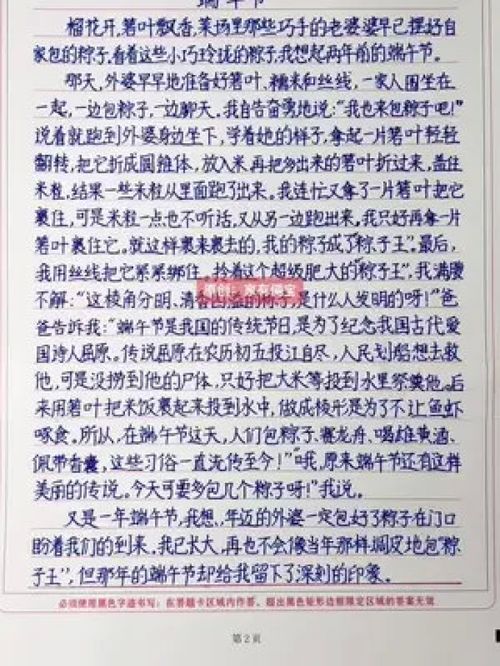 端午节
榴花开,箬叶飘香,菜场里那些巧手的老婆婆早已摆好自
家包的粽子。看着这些小巧玲珑的粽子,我想起两年前的端午节。
那天,外婆早早地准备好箬叶、糯米和丝线,一家人围坐在
一起,一边包粽子,一边聊天。我自告奋勇地说:“我也来包粽子吧!”
说着就跑到外婆身边坐下,学着她的样子,拿起一片箬叶轻轻
翻转,把它折成圆锥体,放入米,再把多出来的箬叶折过来,盖住
米粒,结果一些米粒从里面跑了出来。我连忙又拿了一片箬叶把它
裹住,可是米粒一点也不听话,又从另一边跑出来。我只好再拿一片
箬叶裹住它。就这样裹来裹去的,我的粽子成了“粽子王”。最后,
我用丝线把它紧紧绑住。拎着这个超级肥大的“粽子王”,我满腹
不解:“这棱角分明、清香四溢的粽子,是什么人发明的呀!”爸
爸告诉我:“端午节是我国的传统节日,是为了纪念我国古代爱
国诗人屈原。传说屈原在农历初五投江自尽,人民划船想去救
他,可是没捞到他的尸体,只好把大米等投到水里祭奠他。后
来用箬叶把米饭裹起来投到水中,做成棱形是为了不让鱼虾
啄食。所以,在端午节这天,人们包粽子、赛龙舟、喝雄黄酒、
佩带香囊,这些习俗一直流传至今!”“哦,原来端午节还有这样
美丽的传说。今天可要多包几个粽子呀!”我说。
又是一年端午节,我想,年迈的外婆一定包好了粽子在门口
盼着我们的到来。我已长大,再也不会像当年那样调皮地包“粽
子王”,但那年的端午节却给我留下了深刻的印象。
原创:家有俩宝
必须使用黑色字迹书写:在答题卡区域内作答,超出黑色矩形边框限定区域的答案无效
第2页